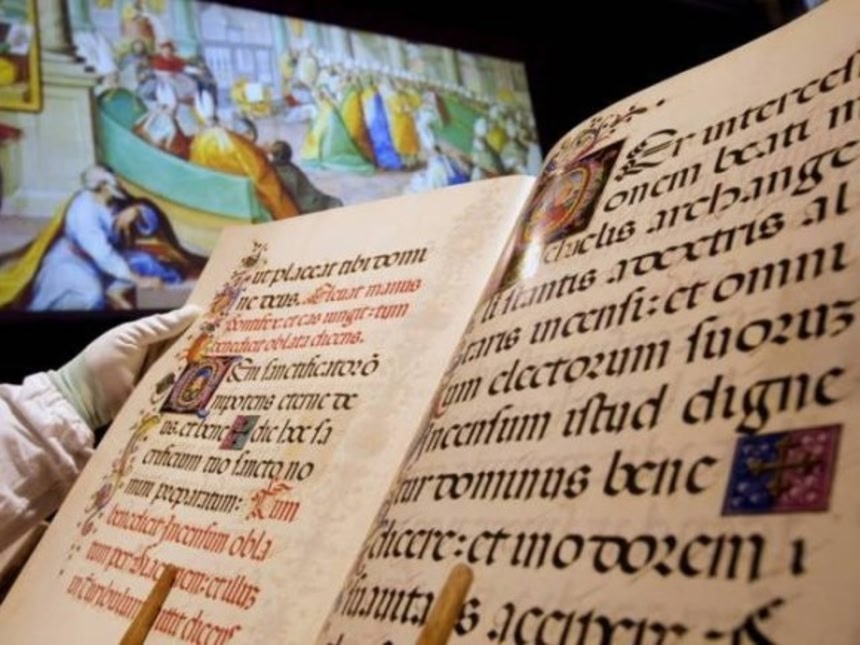 ut placeat tibi domi
ne deus.
manus
pontifex et eas ungit: tum
benedicit oblata dicens.
sanctificator ō
nipotens eterne de
us. et bene dic hoc sa
crificium tuo sancto no
mini preparatum: Tum
benedicit Incensum obla
tum per Diaconum: et illud
in turibulum mittit dicens
Per intercess
onem beati m
chaelis archange
li stantis a dextris al
taris incensi: et omni
um electorum suoruz
Incensum istud digne
tur dominus bene
dicere: et in odorem
suauita s accipere